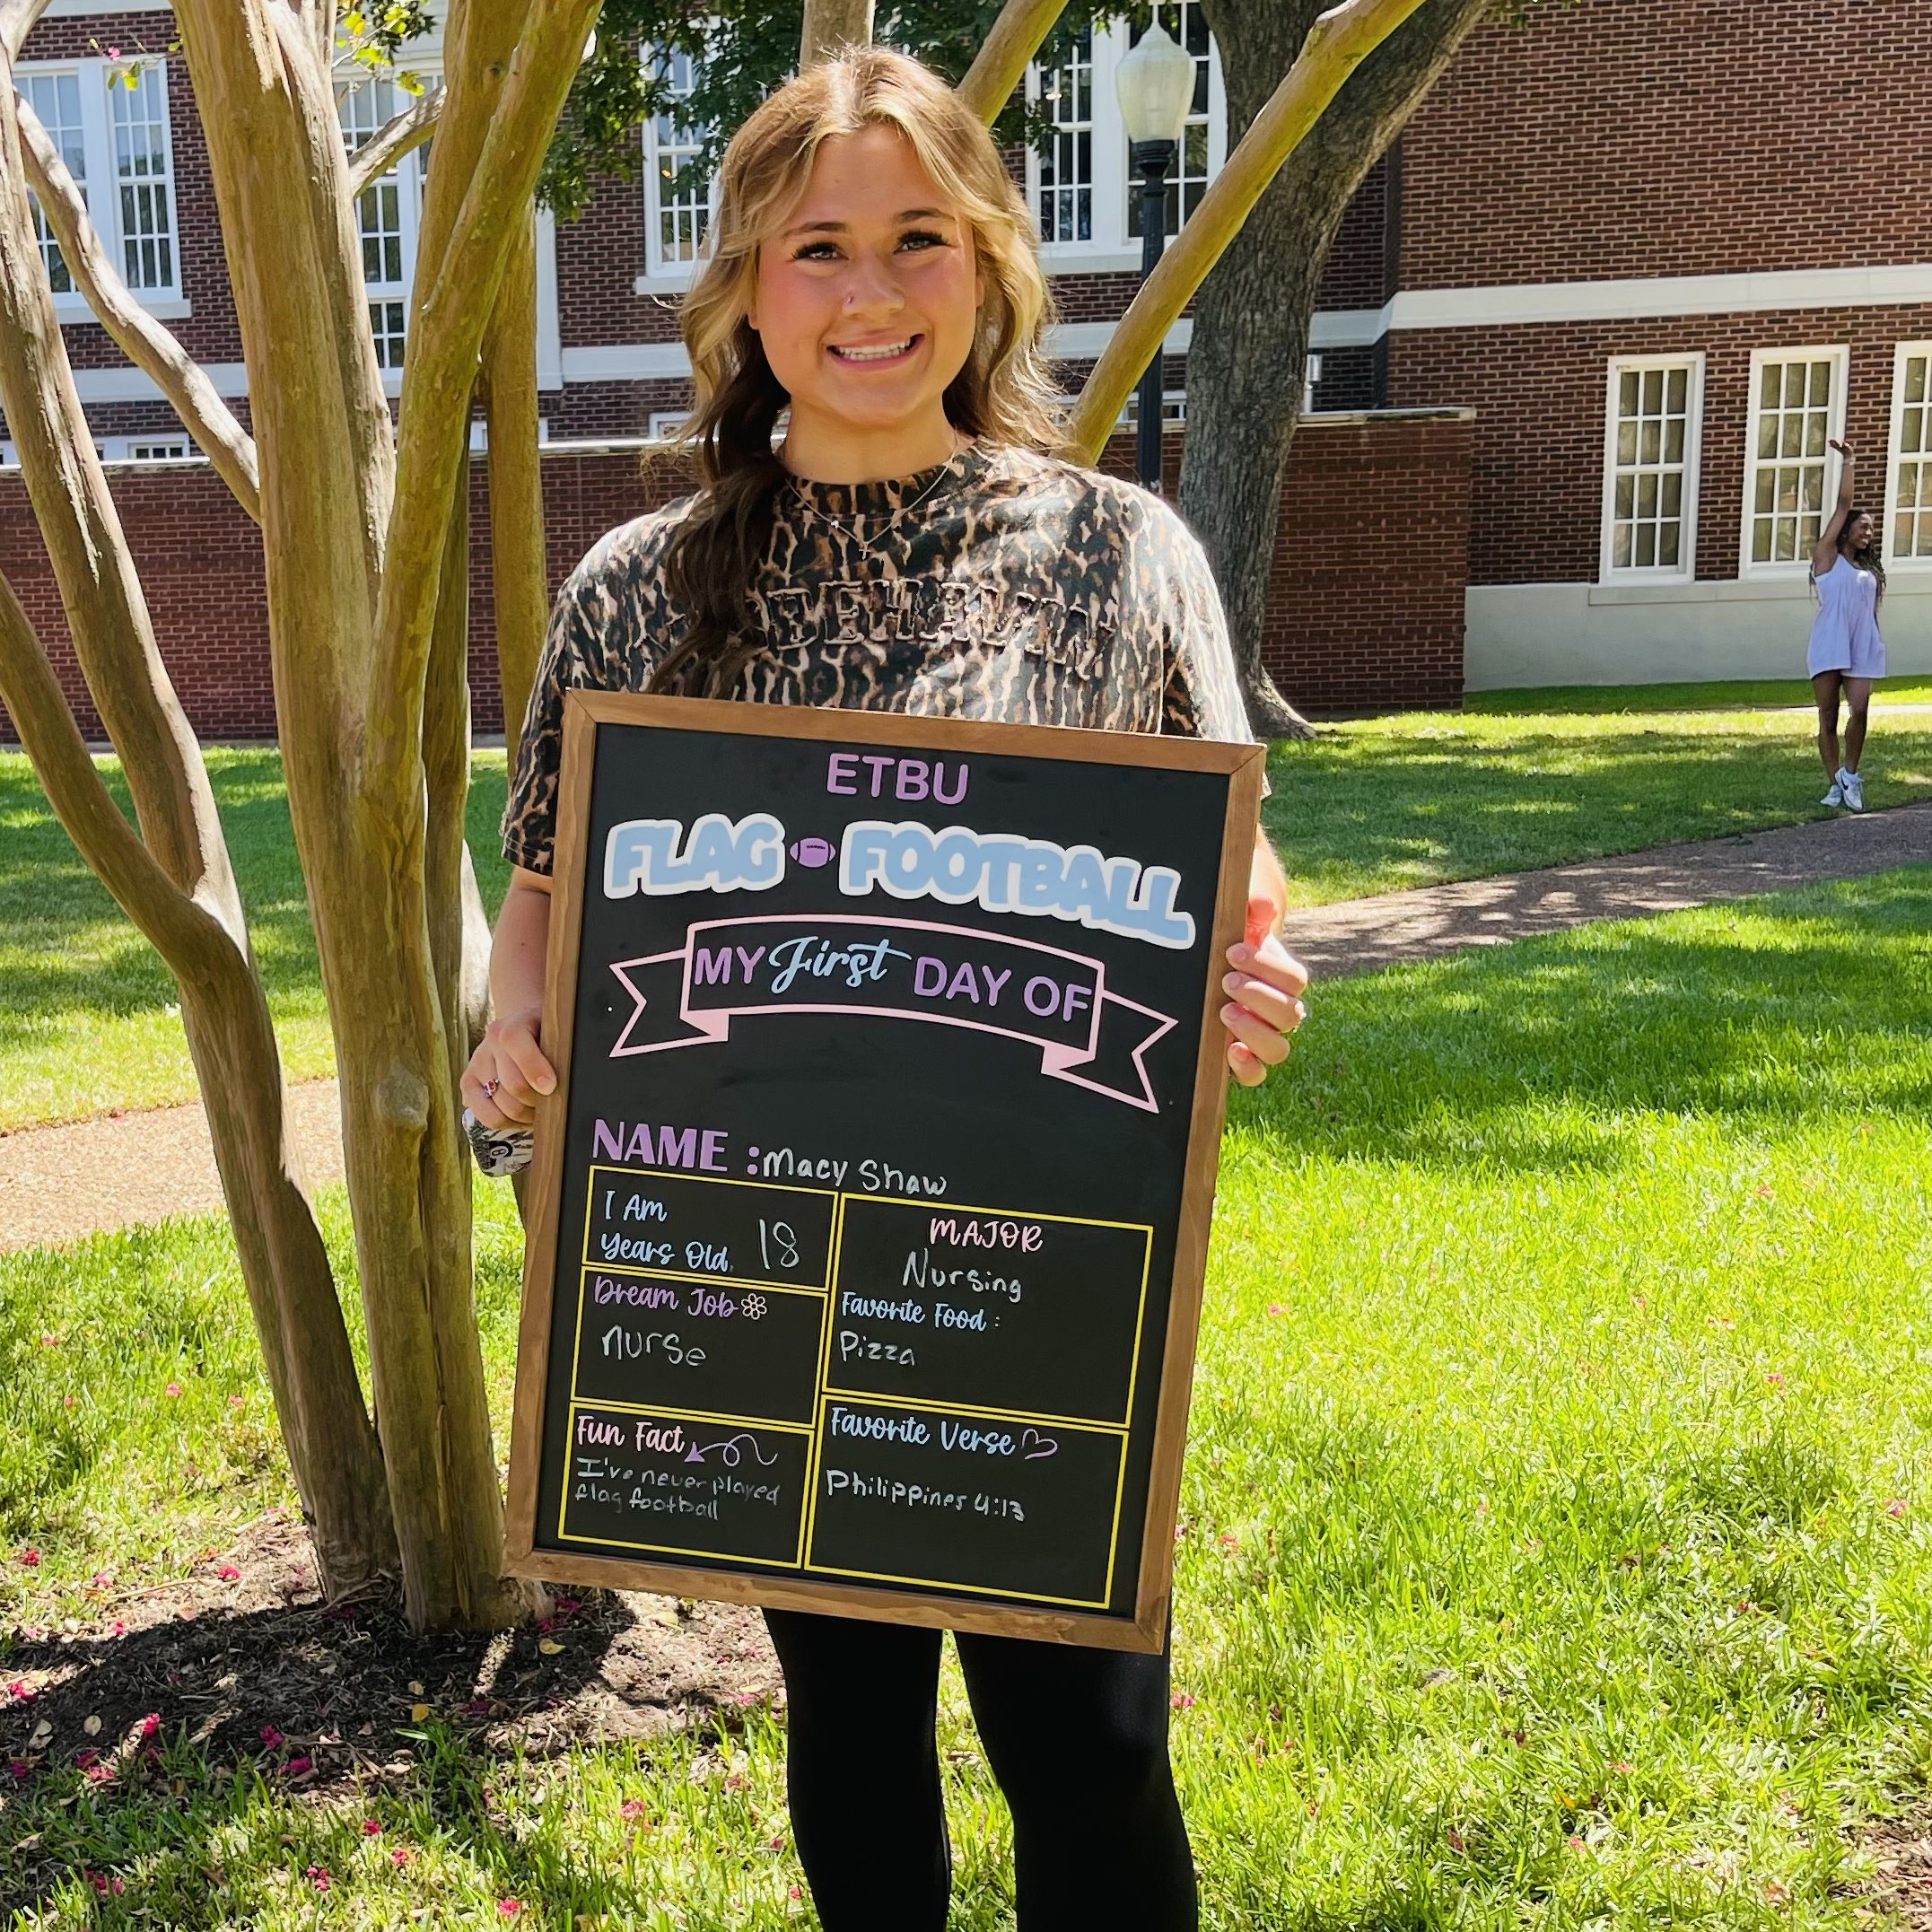 ETBU
FLAG FOOTBALL
MY First DAY OF
NAME : Macy Shaw
I Am
Years Old. 18
Dream Job
nurse
Fun Fact
I've never played
flag football
MAJOR
Nursing
Favorite Food :
Pizza
Favorite Verse
Philippines 4:13